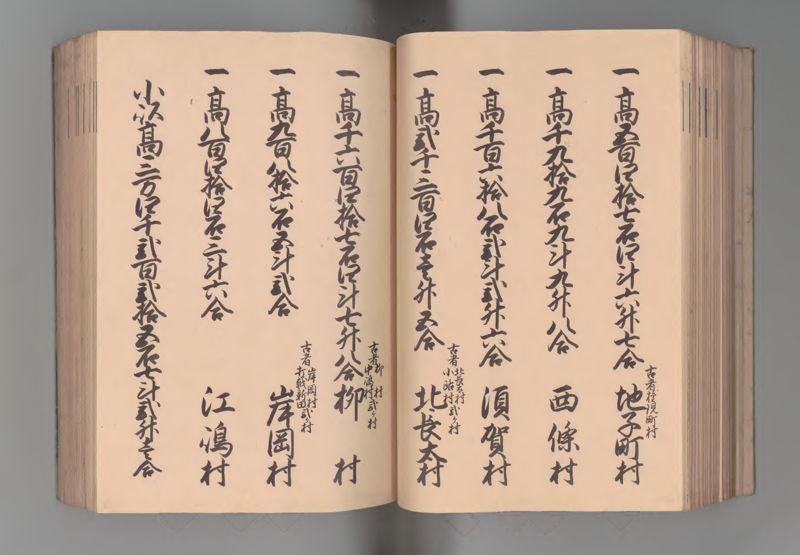 一高五百四拾七石四斗六升七合 地子町村
古者後現町村
一高千九拾九石九斗九升八合 西條村
一高千百六拾八石弐斗弐升六合 須賀村
一高弐千三百四石壱升五合 北長太村
古者北長太村
小治村弐ヶ村
一高千六百四拾七石四斗七升八合 柳 村
古者柳 村
中嶋村弐ヶ村
一高九百八拾六石五斗弐合 岸岡村
古者岸岡村
打越新田弐ヶ村
一高八百四拾四石三斗六合 江嶋村
小以高三万四千弐百弐拾五石七斗弐升壱合